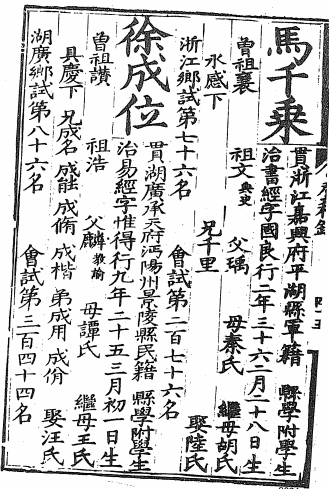 馬千乘
貫浙江嘉興府平湖縣軍籍 縣學附學生
治書經字國良行二年三十六二月二十八日生
曾祖襄 祖文典史 父瑀 母秦氏 繼母胡氏
永感下 兄千里 娶陸氏
浙江鄉試第七十六名 會試第二百七十六名
徐成位
貫湖廣承天府沔陽州景陵縣民籍 縣學附學生
治易經字惟得行九年二十五三月初一日生
曾祖讚 祖浩 父麟教諭 母譚氏 繼母王氏
具慶下 兄成名 成能 成脩 成楷 弟成用 成佾 娶汪氏
湖廣鄉試第八十六名 會試第三百四十四名